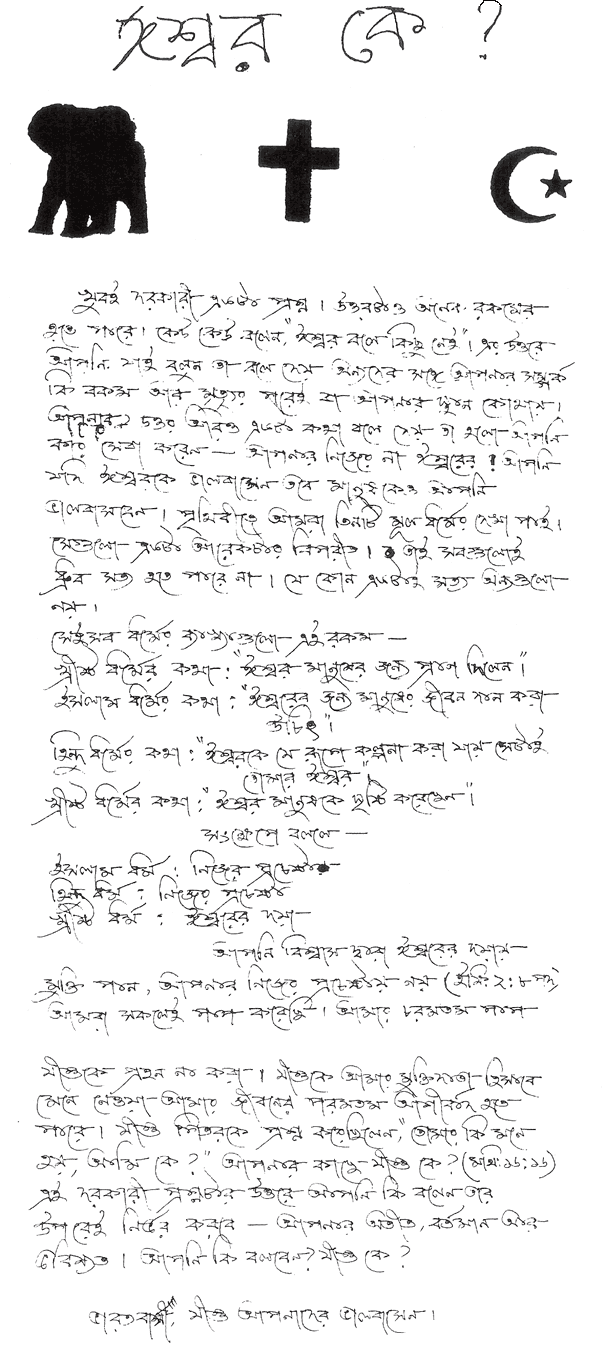 ঈশ্বর কে ?
খুবই দরকারী একটা প্রশ্ন । উত্তরটাও অনেক রকমের
হতে পারে । কেউ কেউ বলেন, "ঈশ্বর বলে কিছু নেই" । এর উত্তরে
আপনি যাই বলুন তা বলে দেয় অন্যদের সঙ্গে আপনার সম্পর্ক
কি রকম আর মৃত্যুর পরেই বা আপনার স্থান কোথায় ।
আপনার উত্তর আরও একটা কথা বলে দেয় তা হলো আপনি
কার সেবা করেন — আপনার নিজের না ঈশ্বরের ? আপনি
যদি ঈশ্বরকে ভালবাসেন তবে মানুষকেও আপনি
ভালবাসবেন । পৃথিবীতে আমরা তিনটি মূল ধর্মের দেখা পাই ।
সেগুলো একটা আরেকটার বিপরীত । তাই সবগুলোই
ধ্রুব সত্য হতে পারে না । যে কোন একটাই সত্য অন্যগুলো
নয় ।
সেইসব ধর্মের ব্যাখ্যাগুলো এই রকম —
খ্রীষ্ট ধর্মের কথা : "ঈশ্বর মানুষের জন্য প্রাণ দিলেন" ।
ইসলাম ধর্মের কথা : "ঈশ্বরের জন্য মানুষের জীবন দান করা
উচিৎ" ।
হিন্দু ধর্মের কথা : "ঈশ্বরকে যে রূপে কল্পনা করা যায় সেটাই
তোমার ঈশ্বর" ।
খ্রীষ্ট ধর্মের কথা : "ঈশ্বর মানুষকে সৃষ্টি করেছেন" ।
সংক্ষেপে বললে —
ইসলাম ধর্ম : নিজের প্রচেষ্টা
হিন্দু ধর্ম : নিজের প্রচেষ্টা
খ্রীষ্ট ধর্ম : ঈশ্বরের দয়া
আপনি বিশ্বাস দ্বারা ঈশ্বরের দয়ায়
মুক্তি পান, আপনার নিজের প্রচেষ্টায় নয় (ইফি: ২: ৮ পদ)
আমরা সকলেই পাপ করেছি । আমার চরমতম পাপ
যীশুকে গ্রহন না করা । যীশুকে আমার মুক্তিদাতা হিসাবে
মেনে নেওয়া আমার জীবনের পরমতম আশীর্বাদ হতে
পারে । যীশু পিতরকে প্রশ্ন করেছিলেন, "তোমার কি মনে
হয়, আমি কে ?" আপনার কাছে যীশু কে ? (মথি: ১৬: ১৬)
এই দরকারী প্রশ্নটার উত্তরে আপনি কি বলেন তার
উপরেই নির্ভর করবে — আপনার অতীত, বর্তমান আর
ভবিষ্যত । আপনি কি বলবেন ? যীশু কে ?
ভারতবাসী, যীশু আপনাদের ভালবাসেন ।